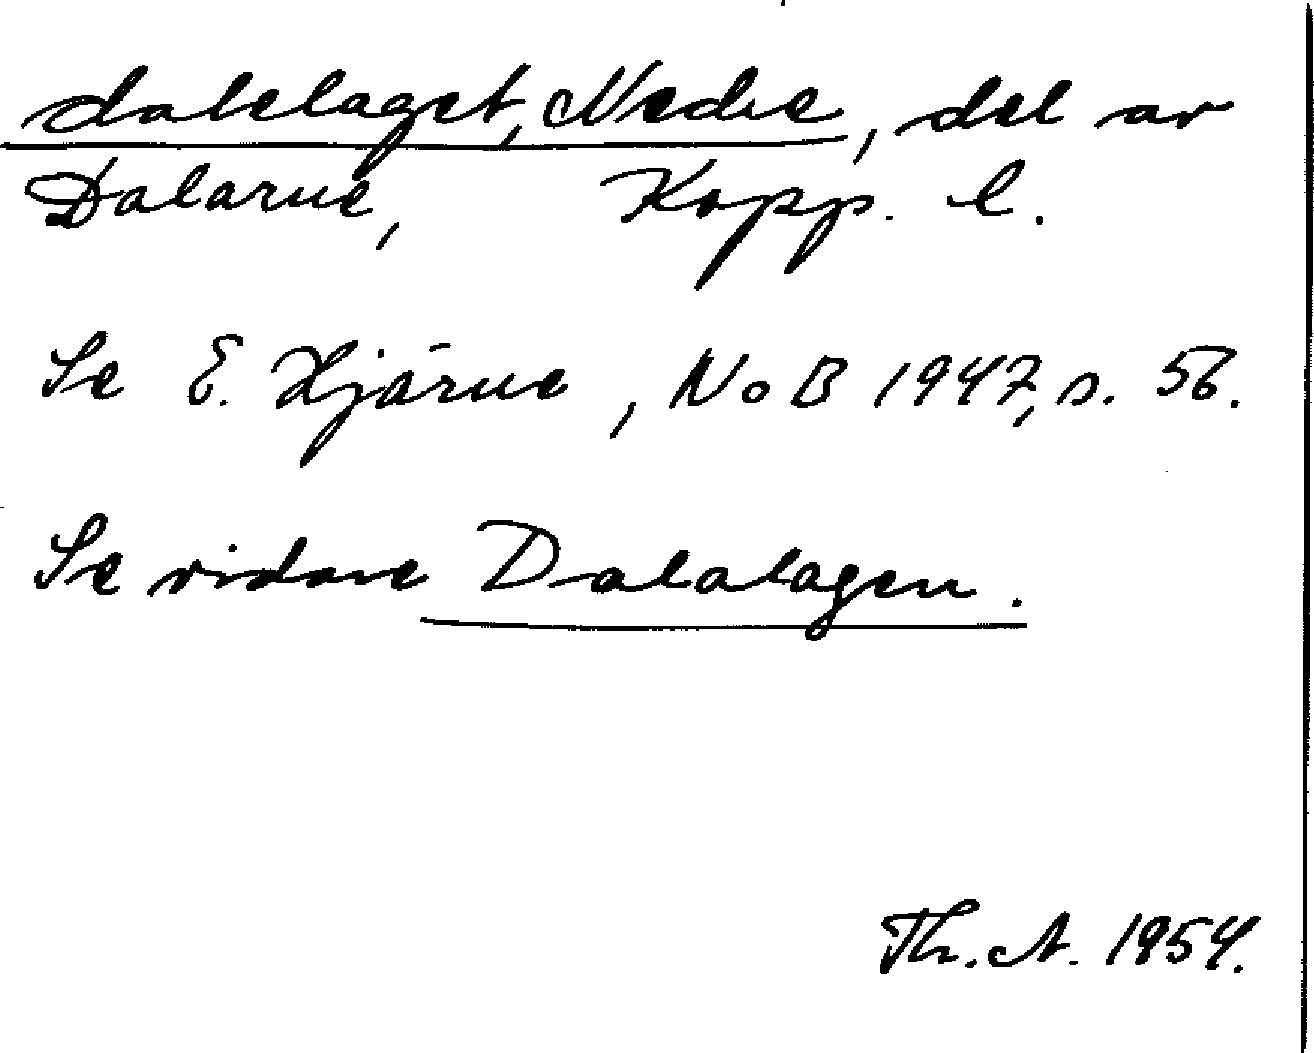 dalelaget, Nedre, del av
Dalarne, Kopp. l.
Se E. Hjärne, NoB 1947, s. 56.
Se vidare Dalalagen.
Th. A. 1954.